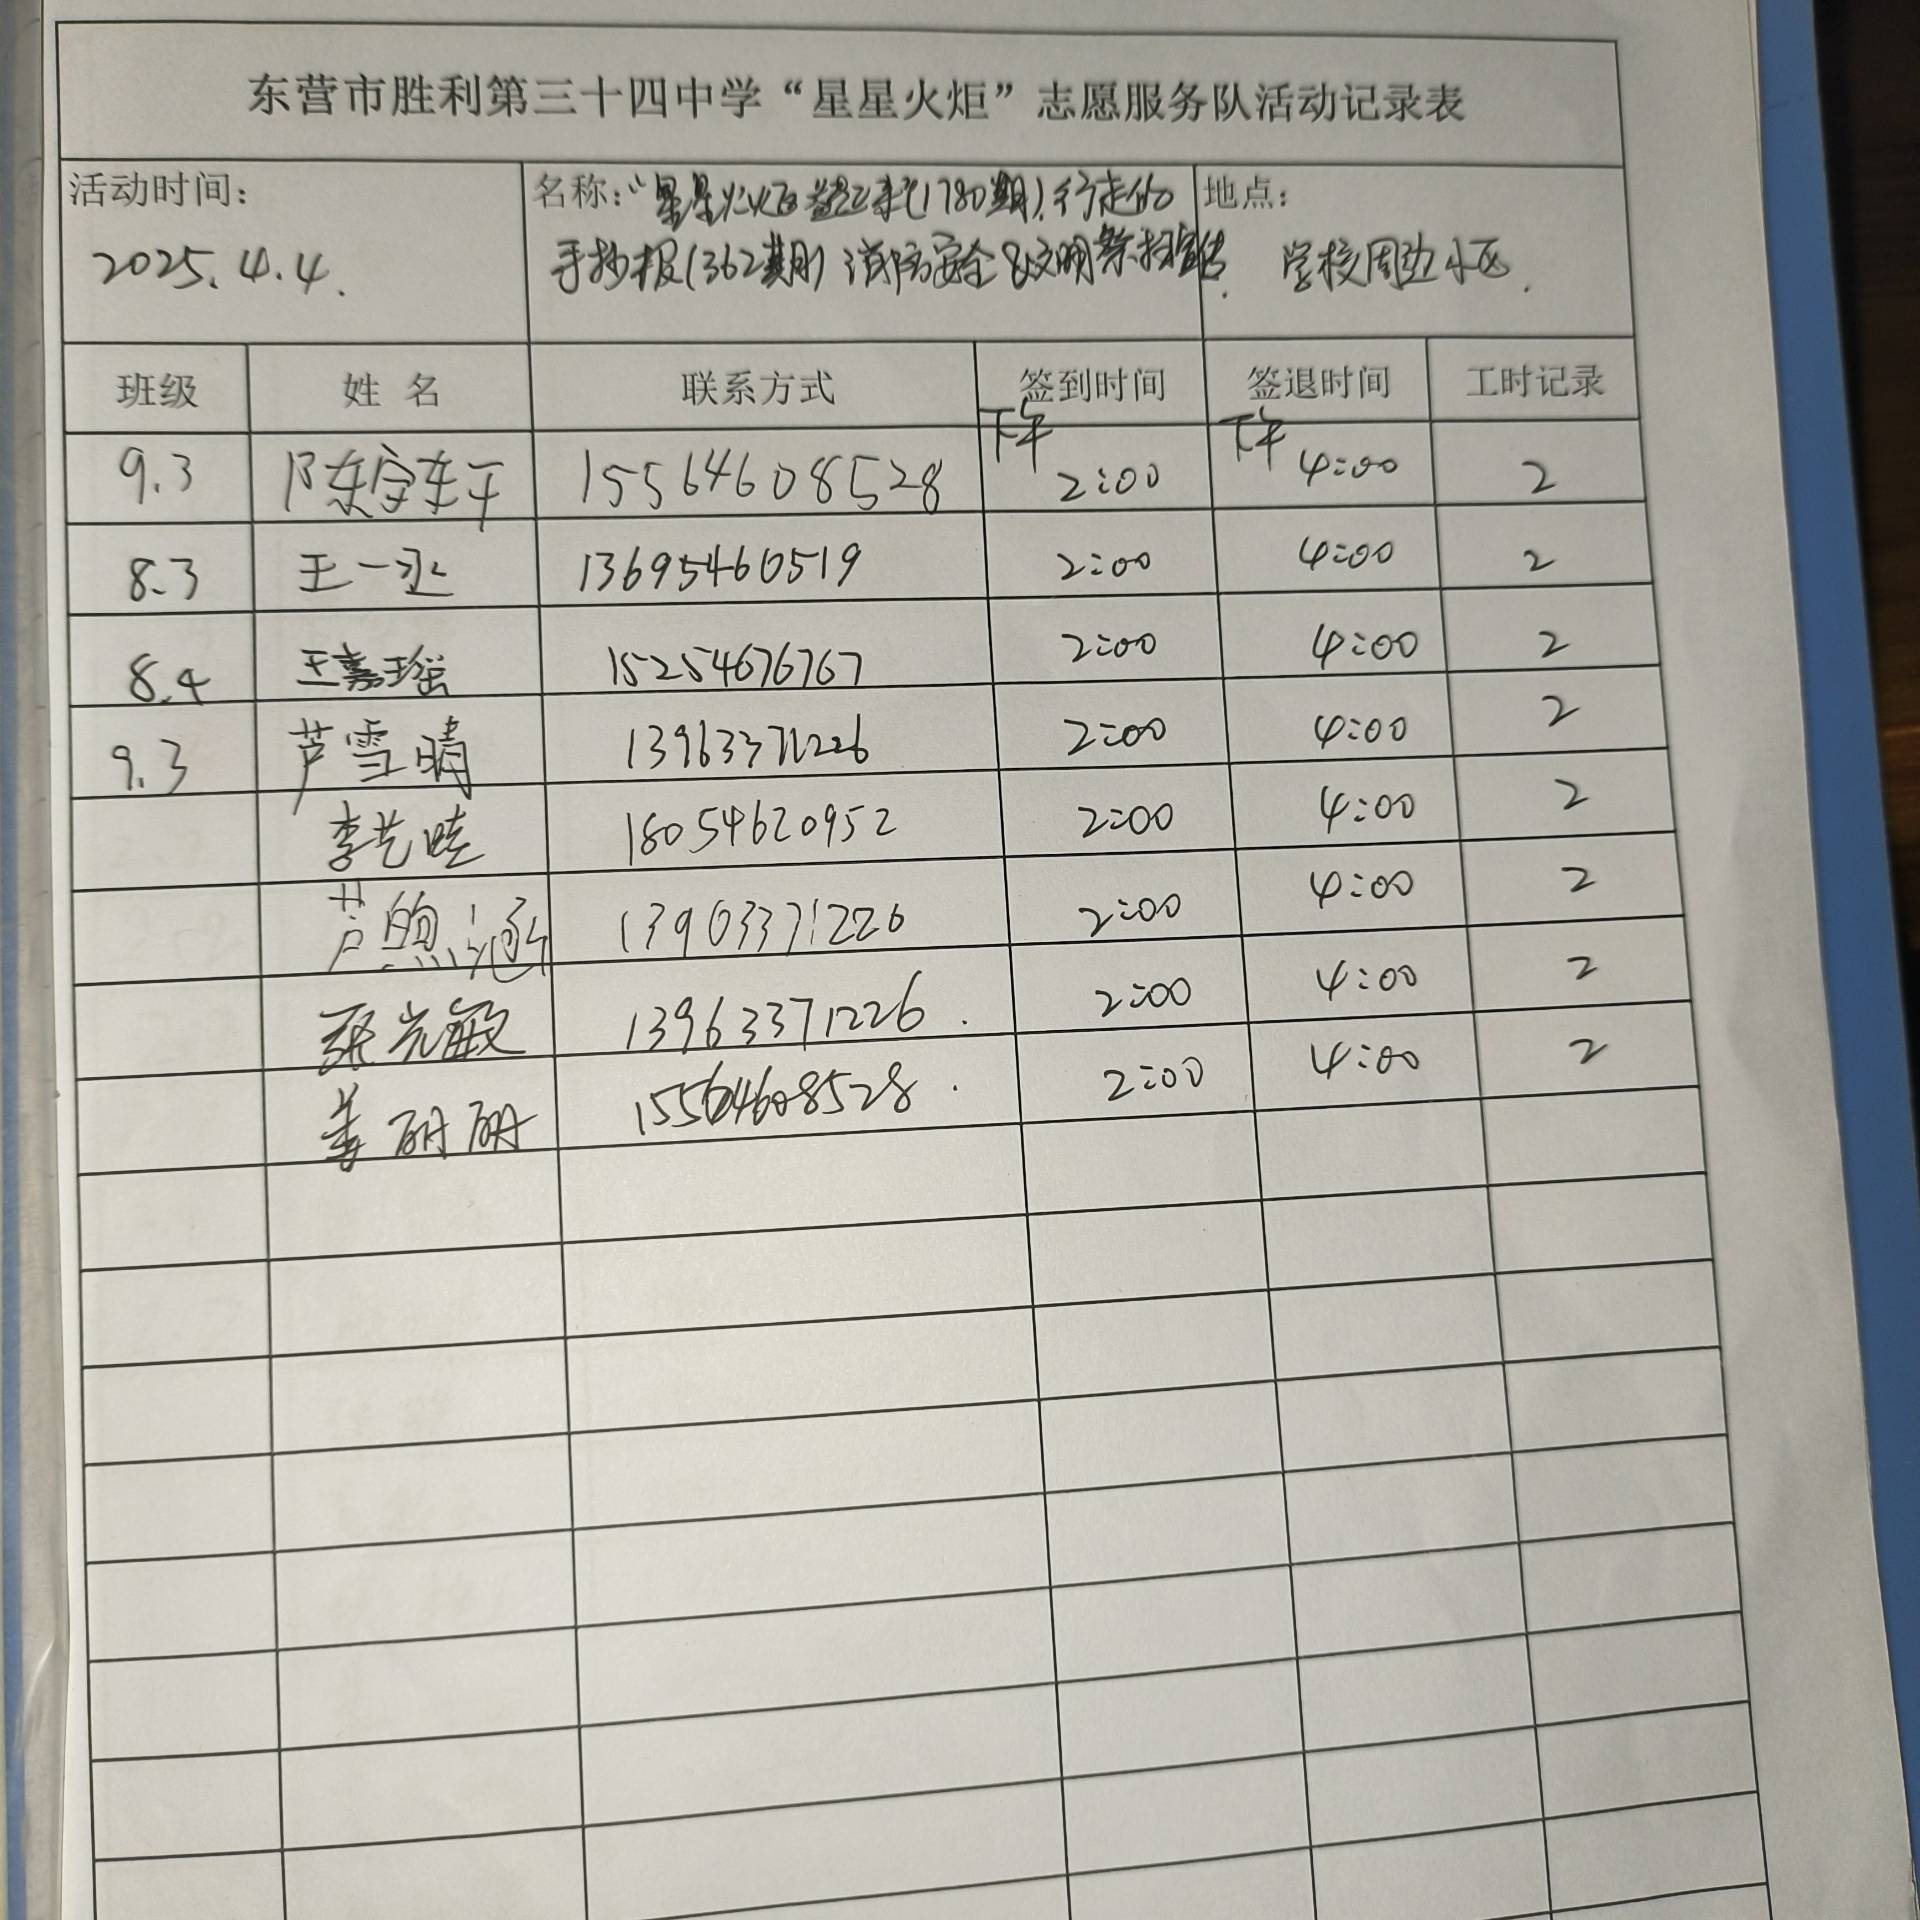 东营市胜利第三十四中学“星星火炬”志愿服务队活动记录表
活动时间： 名称：“星星火炬 (1780期).行走的 地点：
2025.4.4. 手抄报(362期) 消防安全&文明祭扫宣传. 学校周边小区.
班级 姓 名 联系方式 签到时间 签退时间 工时记录
9.3 陈 15564608528 下午 2:00 下午 4:00 2
8.3 王一丞 13695460519 2:00 4:00 2
8.4 王嘉瑶 15254676767 2:00 4:00 2
9.3 芦雪晴 13963371226 2:00 4:00 2
李艺 18054620952 2:00 4:00 2
芦煦涵 13963371226 2:00 4:00 2
张光敏 13963371226. 2:00 4:00 2
姜丽丽 15564608528. 2:00 4:00 2